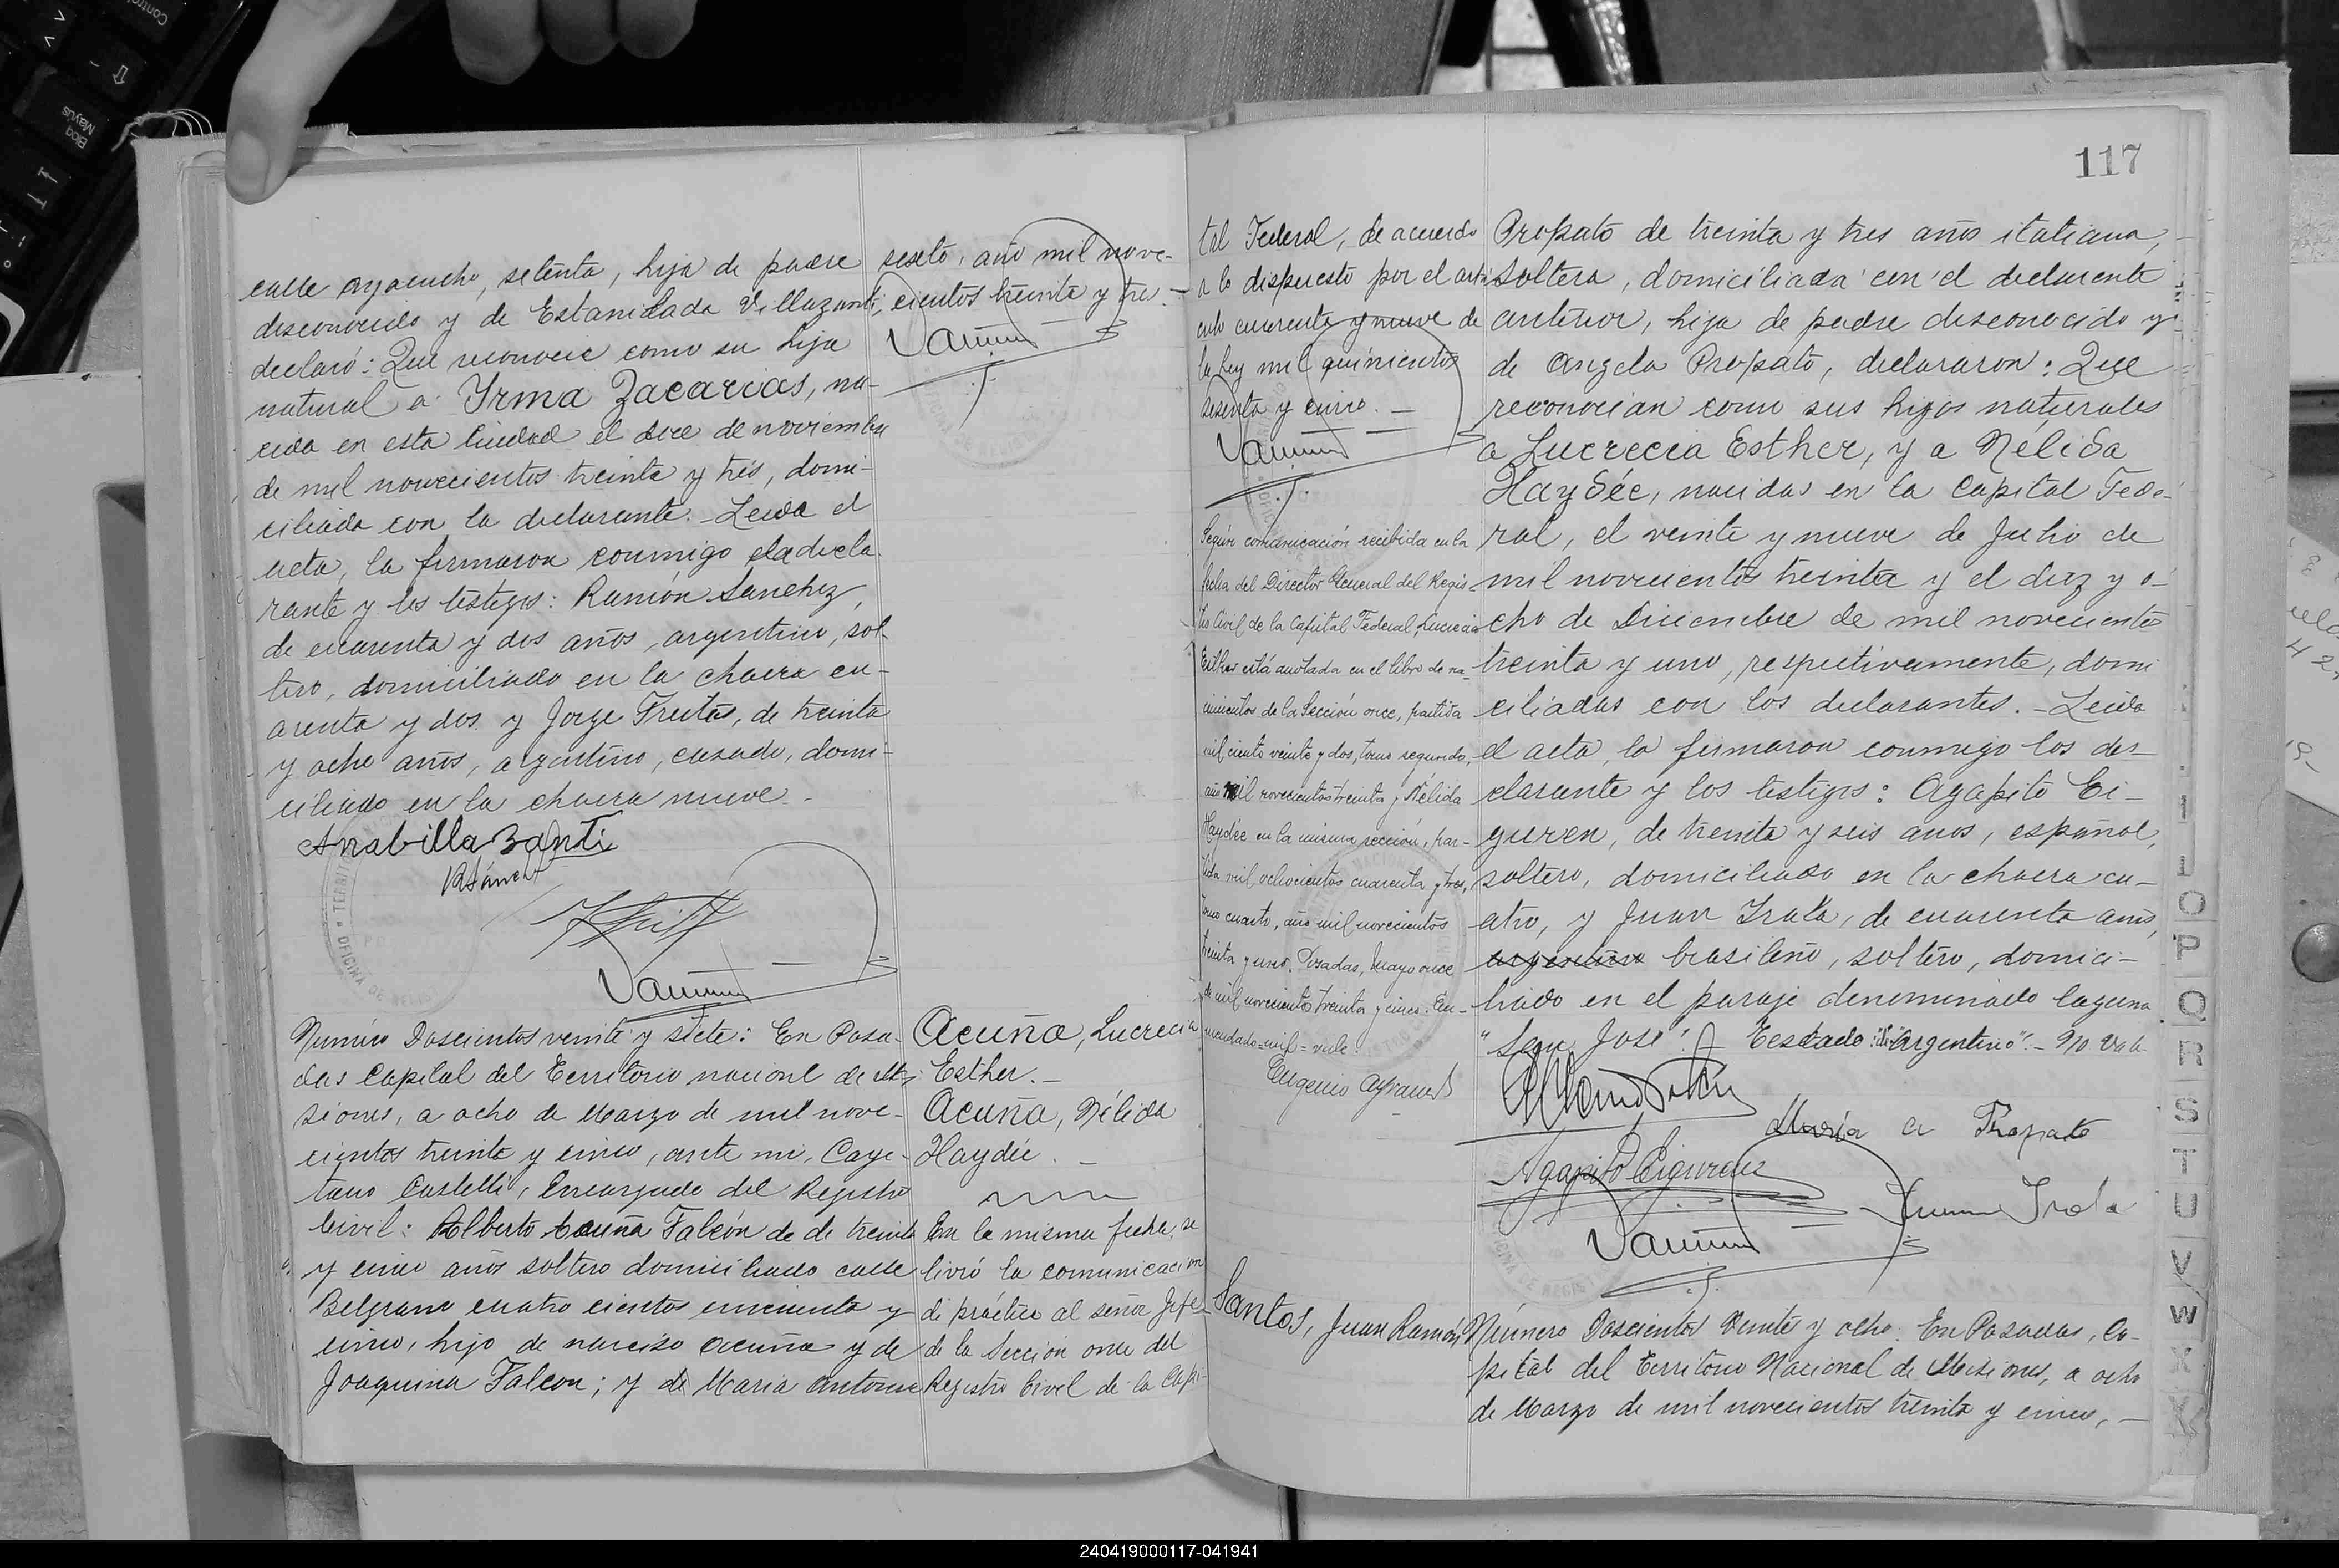 calle Ayacucho, setenta, hija de padre
desconocido y de Estanislada Villazanti,
declaró: Que reconoce como su hija
natural a Irma Zacarias, na-
cida en esta Ciudad el doce de noviembre
de mil novecientos treinta y tres, domi-
ciliada con la declarante.- Leida el
acta, la firmaron conmigo la decla-
rante y los testigos: Ramón Sanchez,
de cuarenta y dos años, argentino, sol-
tero, domiciliado en la chacra cu-
arenta y dos y Jorge Freitas, de treinta
y ocho años, argentino, casado, domi-
ciliado en la chacra nueve.-
Número Doscientos veinte y siete: En Posa-
das Capital del Territorio nacional de Mi-
siones, a ocho de Marzo de mil nove-
cientos treinta y cinco, ante mi, Caye-
tano Castelli, Encargado del Registro
Civil: Alberto Acuña Falcón de de treinta
y cinco años soltero domiciliado calle
Belgrano cuatro cientos cincuenta y
cinco, hijo de narciso Acuña y de
Joaquina Falcon; y de Maria Antonia
sexto, año mil nove-
cientos treinta y tres.-
Acuña, Lucrecia
Esther.-
Acuña, Nélida
Haydée.-
En la misma fecha, se
livró la comunicación
de práctica al señor Jefe
de la Sección once del
Registro Civil de la Capi-
117
tal Federal, de acuerdo
a lo dispuesto por el arti-
culo cuarenta y nueve de
la ley mil quinientos
sesenta y cinco.-
Según comunicación recibida en la
fecha del Director General del Regis-
tro Civil de la Capital Federal, Lucrecia
Esther está anotada en el libro de na-
cimientos de la Sección once, partida
mil ciento veinte y dos, tomo segundo,
año mil novecientos treinta y Nélida
Haydée en la misma sección, par-
tida mil ochocientos cuarenta y tres,
tomo cuarto, año mil novecientos
treinta y uno. Posadas, Mayo once
de mil novecientos treinta y cinco. En-
mendado=mil=vale.
Propato de treinta y tres años italiana,
soltera, domiciliada con el declarante
anterior, hija de padre desconocido y
de Angela Propato, declararon: Que
reconocian como sus hijos naturales
a Lucrecia Esther, y a Nélida
Haydée, nacidas en la Capital Fede-
ral, el veinte y nueve de Julio de
mil novecientos treinta y el diez y o-
cho de Diciembre de mil novecientos
treinta y uno, respectivamente, domi
ciliadas con los declarantes.- Leida
el acta, la firmaron conmigo los de-
clarante y los testigos: Agapito Ei-
guren, de treinta y seis años, español,
soltero, domiciliado en la chacra cu-
atro, y Juan Irala, de cuarenta años,
argentino brasileño, soltero, domici-
liado en el paraje denominado laguna
"San José".- Testado: "argentino".- No vale
María A Propato
Agapito Eiguren
Juan Irala
Santos, Juan Ramón
Número Doscientos Veinte y ocho: En Posadas, Ca-
pital del Territorio Nacional de Misiones, a ocho
de Marzo de mil novecientos treinta y cinco,-
O
P
Q
R
S
T
U
V
W
X
240419000117-041941